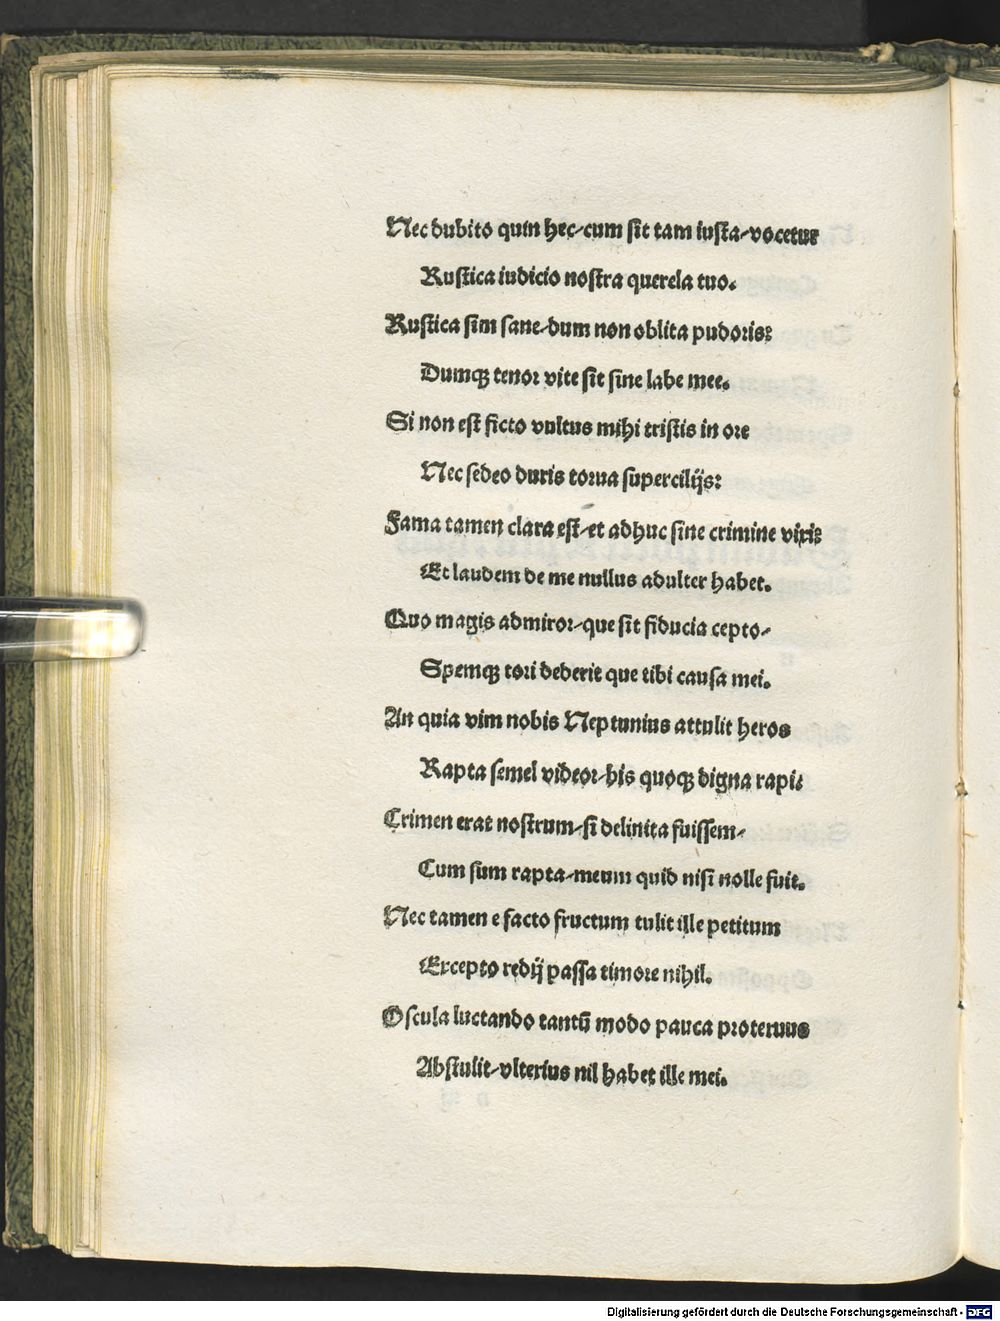 Nec dubito quin hec/cum sit tam iusta/vocetur
Rustica iudicio nostra querela tuo.
Rustica sim sane/dum non oblita pudoris:
Dumq; tenor vite sit sine labe mee.
Si non est ficto vultus mihi tristis in ore
Nec sedeo duris torua supercilijs:
Fama tamen clara est/et adhuc sine crimine vixi:
Et laudem de me nullus adulter habet.
Quo magis admiror/que sit fiducia cepto/
Spemq; tori dederit que tibi causa mei.
An quia vim nobis Neptunius attulit heros
Rapta semel videor/bis quoq; digna rapi:
Crimen erat nostrum/si delinita fuissem/
Cum sum rapta/meum quid nisi nolle fuit.
Nec tamen e facto fructum tulit ille petitum
Excepto redij passa timore nihil.
Oscula luctando tantū modo pauca proteruus
Abstulit/vlterius nil habet ille mei.
Digitalisierung gefördert durch die Deutsche Forschungsgemeinschaft - DFG